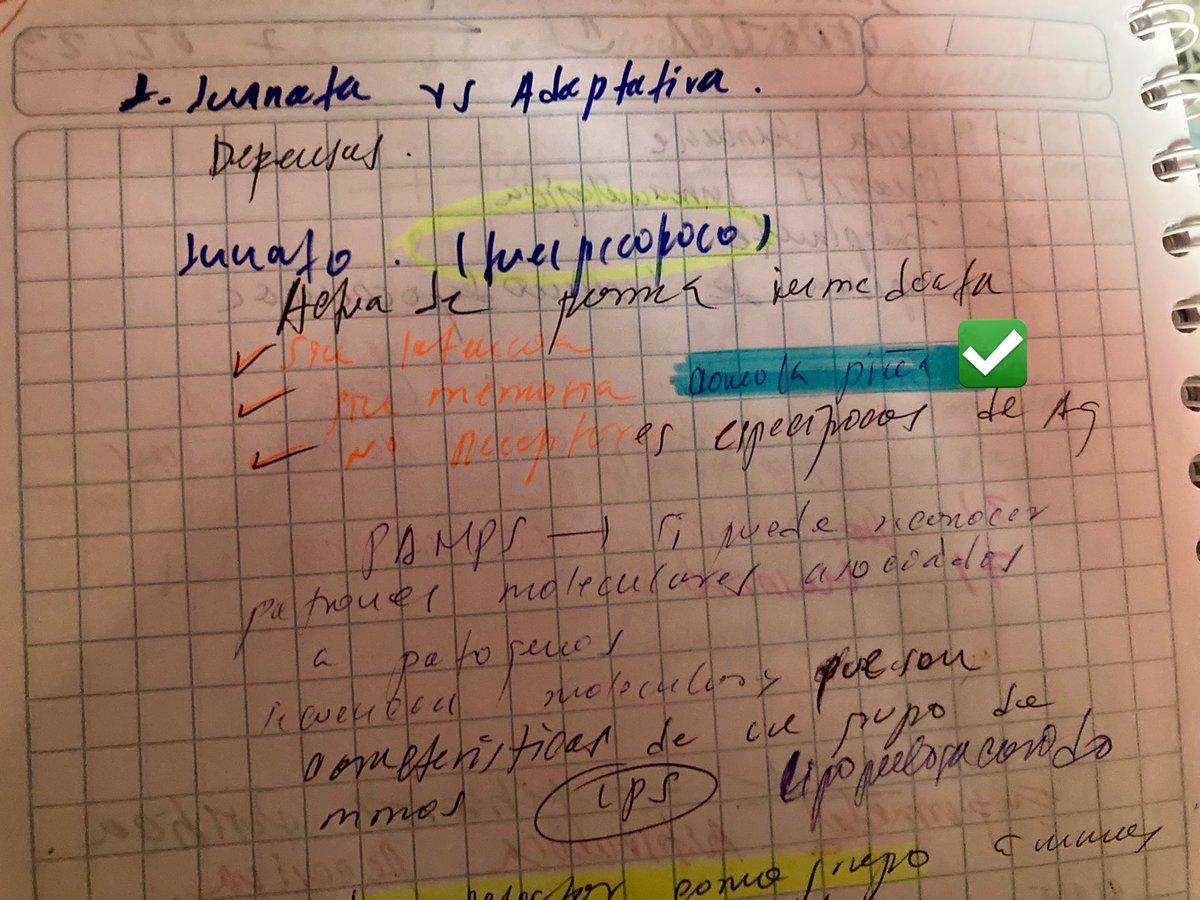 1. Innata vs Adaptativa.
Defensas.
Innato. (Inespecífico)
Actua de forma inmediata
sin latencia
sin memoria
No receptores especificos de Ag
PAMPS → Si puede reconocer
patrones moleculares asociados
a patogenos
secuencias moleculares que son
características de un grupo de
mmos LPS Lipopolisacarido
como grupo